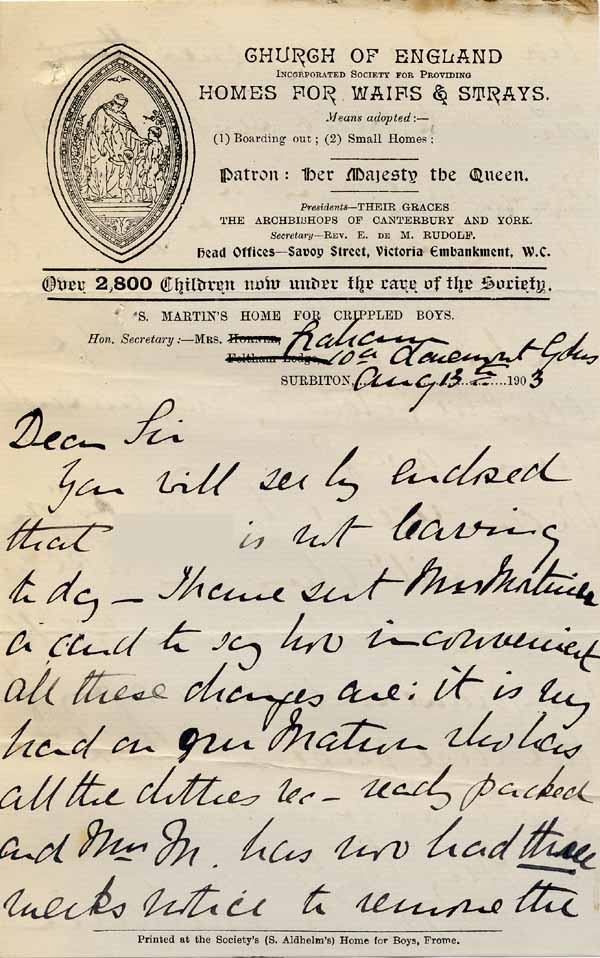 CHURCH OF ENGLAND
INCORPORATED SOCIETY FOR PROVIDING
HOMES FOR WAIFS & STRAYS.
Means adopted:—
(1) Boarding out; (2) Small Homes:
Patron: Her Majesty the Queen.
Presidents—THEIR GRACES
THE ARCHBISHOPS OF CANTERBURY AND YORK.
Secretary—REV. E. DE M. RUDOLF.
Head Offices—Savoy Street, Victoria Embankment, W.C.
Over 2,800 Children now under the care of the Society.
S. MARTIN'S HOME FOR CRIPPLED BOYS.
Hon. Secretary:—MRS. HORNER, Graham
Feltham Lodge, 10a Claremont Gdns
SURBITON, Aug 13th 1903
Dear Sir
You will see by enclosed
that is not leaving
to day – I have sent Mrs Mortimer
a card to say how inconvenient
all these changes are: it is very
hard on our Matron who has
all the clothes &c – ready packed
and Mrs M. has now had three
weeks notice to remove the
Printed at the Society's (S. Aldhelm's) Home for Boys, Frome.